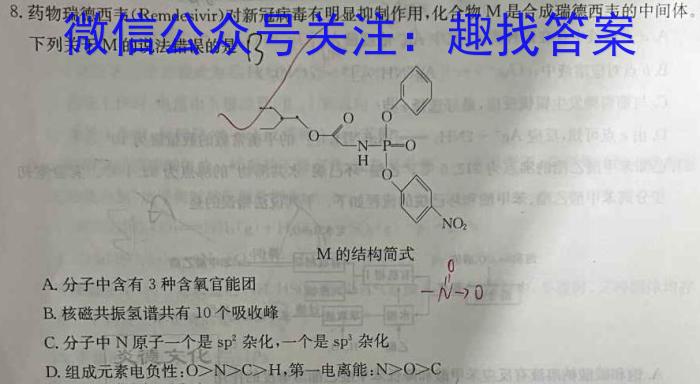 8. 药物瑞德西韦(Remdesivir)对新冠病毒有明显抑制作用,化合物 M 是合成瑞德西韦的中间体。
微信公众号关注：趣找答案
下列关于 M 的说法错误的是 B
O
O
O
O
N
H
P
O
O
NO₂
M 的结构简式
O
-N→O
A. 分子中含有 3 种含氧官能团
B. 核磁共振氢谱共有 10 个吸收峰
C. 分子中 N 原子一个是 sp² 杂化,一个是 sp³ 杂化
D. 组成元素电负性:O>N>C>H,第一电离能:N>O>C